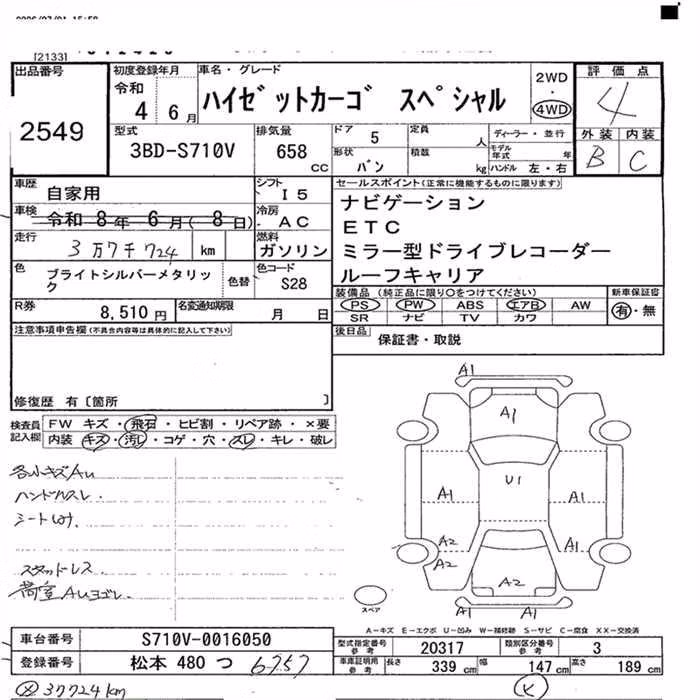 [2133]
出品番号
2549
初度登録年月
令和
4 6月
車名・グレード
ハイゼットカーゴ スペシャル
2WD
・
4WD
評価点
4
外装 内装
B C
型式
3BD-S710V
排気量
658
CC
ドア 5
形状 バン
定員
人
積載
kg
ディーラー・並行
モデル年式 年
ハンドル 左・右
車歴
自家用
シフト I5
車検
令和 8年 6月( 8日)
冷房 AC
走行
3万7千724 km
燃料
ガソリン
色
ブライトシルバーメタリック
色替
色コード
S28
R券
8,510円
名変通知期限
月 日
セールスポイント(正常に機能するものに限ります)
ナビゲーション
ETC
ミラー型ドライブレコーダー
ルーフキャリア
装備品 (純正品に限り○をつけてください)
新車保証書
PS PW ABS エアB AW
有・無
SR ナビ TV カワ
後日品
保証書・取説
注意事項申告欄(不具合内容等は具体的に記入して下さい)
修復歴 有〔箇所 〕
検査員記入欄
FW キズ・飛石・ヒビ割・リペア跡・×要
内装 キズ・汚レ・コゲ・穴・スレ・キレ・破レ
各小キズAU
ハンドルスレ.
スタッドレス
荷室AUヨゴレ.
A1
A1
U1
A1
A1
A2
A2
A1
A2
A1
A1
スペア
A－キズ E－エクボ U－凹み W－補修跡 S－サビ C－腐食 XX－交換済
車台番号
S710V-0016050
登録番号
松本 480 つ 6757
型式指定番号 参考
20317
類別区分番号 参考
3
車庫証明用 参考
長さ 339 cm 幅 147 cm 高さ 189 cm
37724km